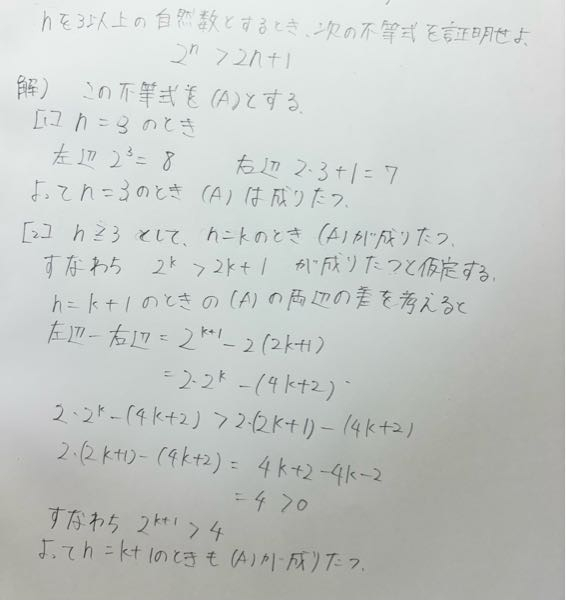 nを3以上の自然数とするとき、次の不等式を証明せよ
2ⁿ > 2n+1
解) この不等式を(A)とする.
[1] n=3のとき
左辺 2³=8 右辺 2·3+1=7
よってn=3のとき (A)は成りたつ.
[2] n≧3 として、n=kのとき (A)が成りたつ.
すなわち 2ᵏ > 2k+1 が成りたつと仮定する.
n=k+1のときの(A)の両辺の差を考えると
左辺-右辺=2ᵏ⁺¹-2(2k+1)
=2·2ᵏ-(4k+2)
2·2ᵏ-(4k+2)>2·(2k+1)-(4k+2)
2·(2k+1)-(4k+2)=4k+2-4k-2
=4>0
すなわち 2ᵏ⁺¹>4
よってn=k+1のときも(A)が成りたつ.